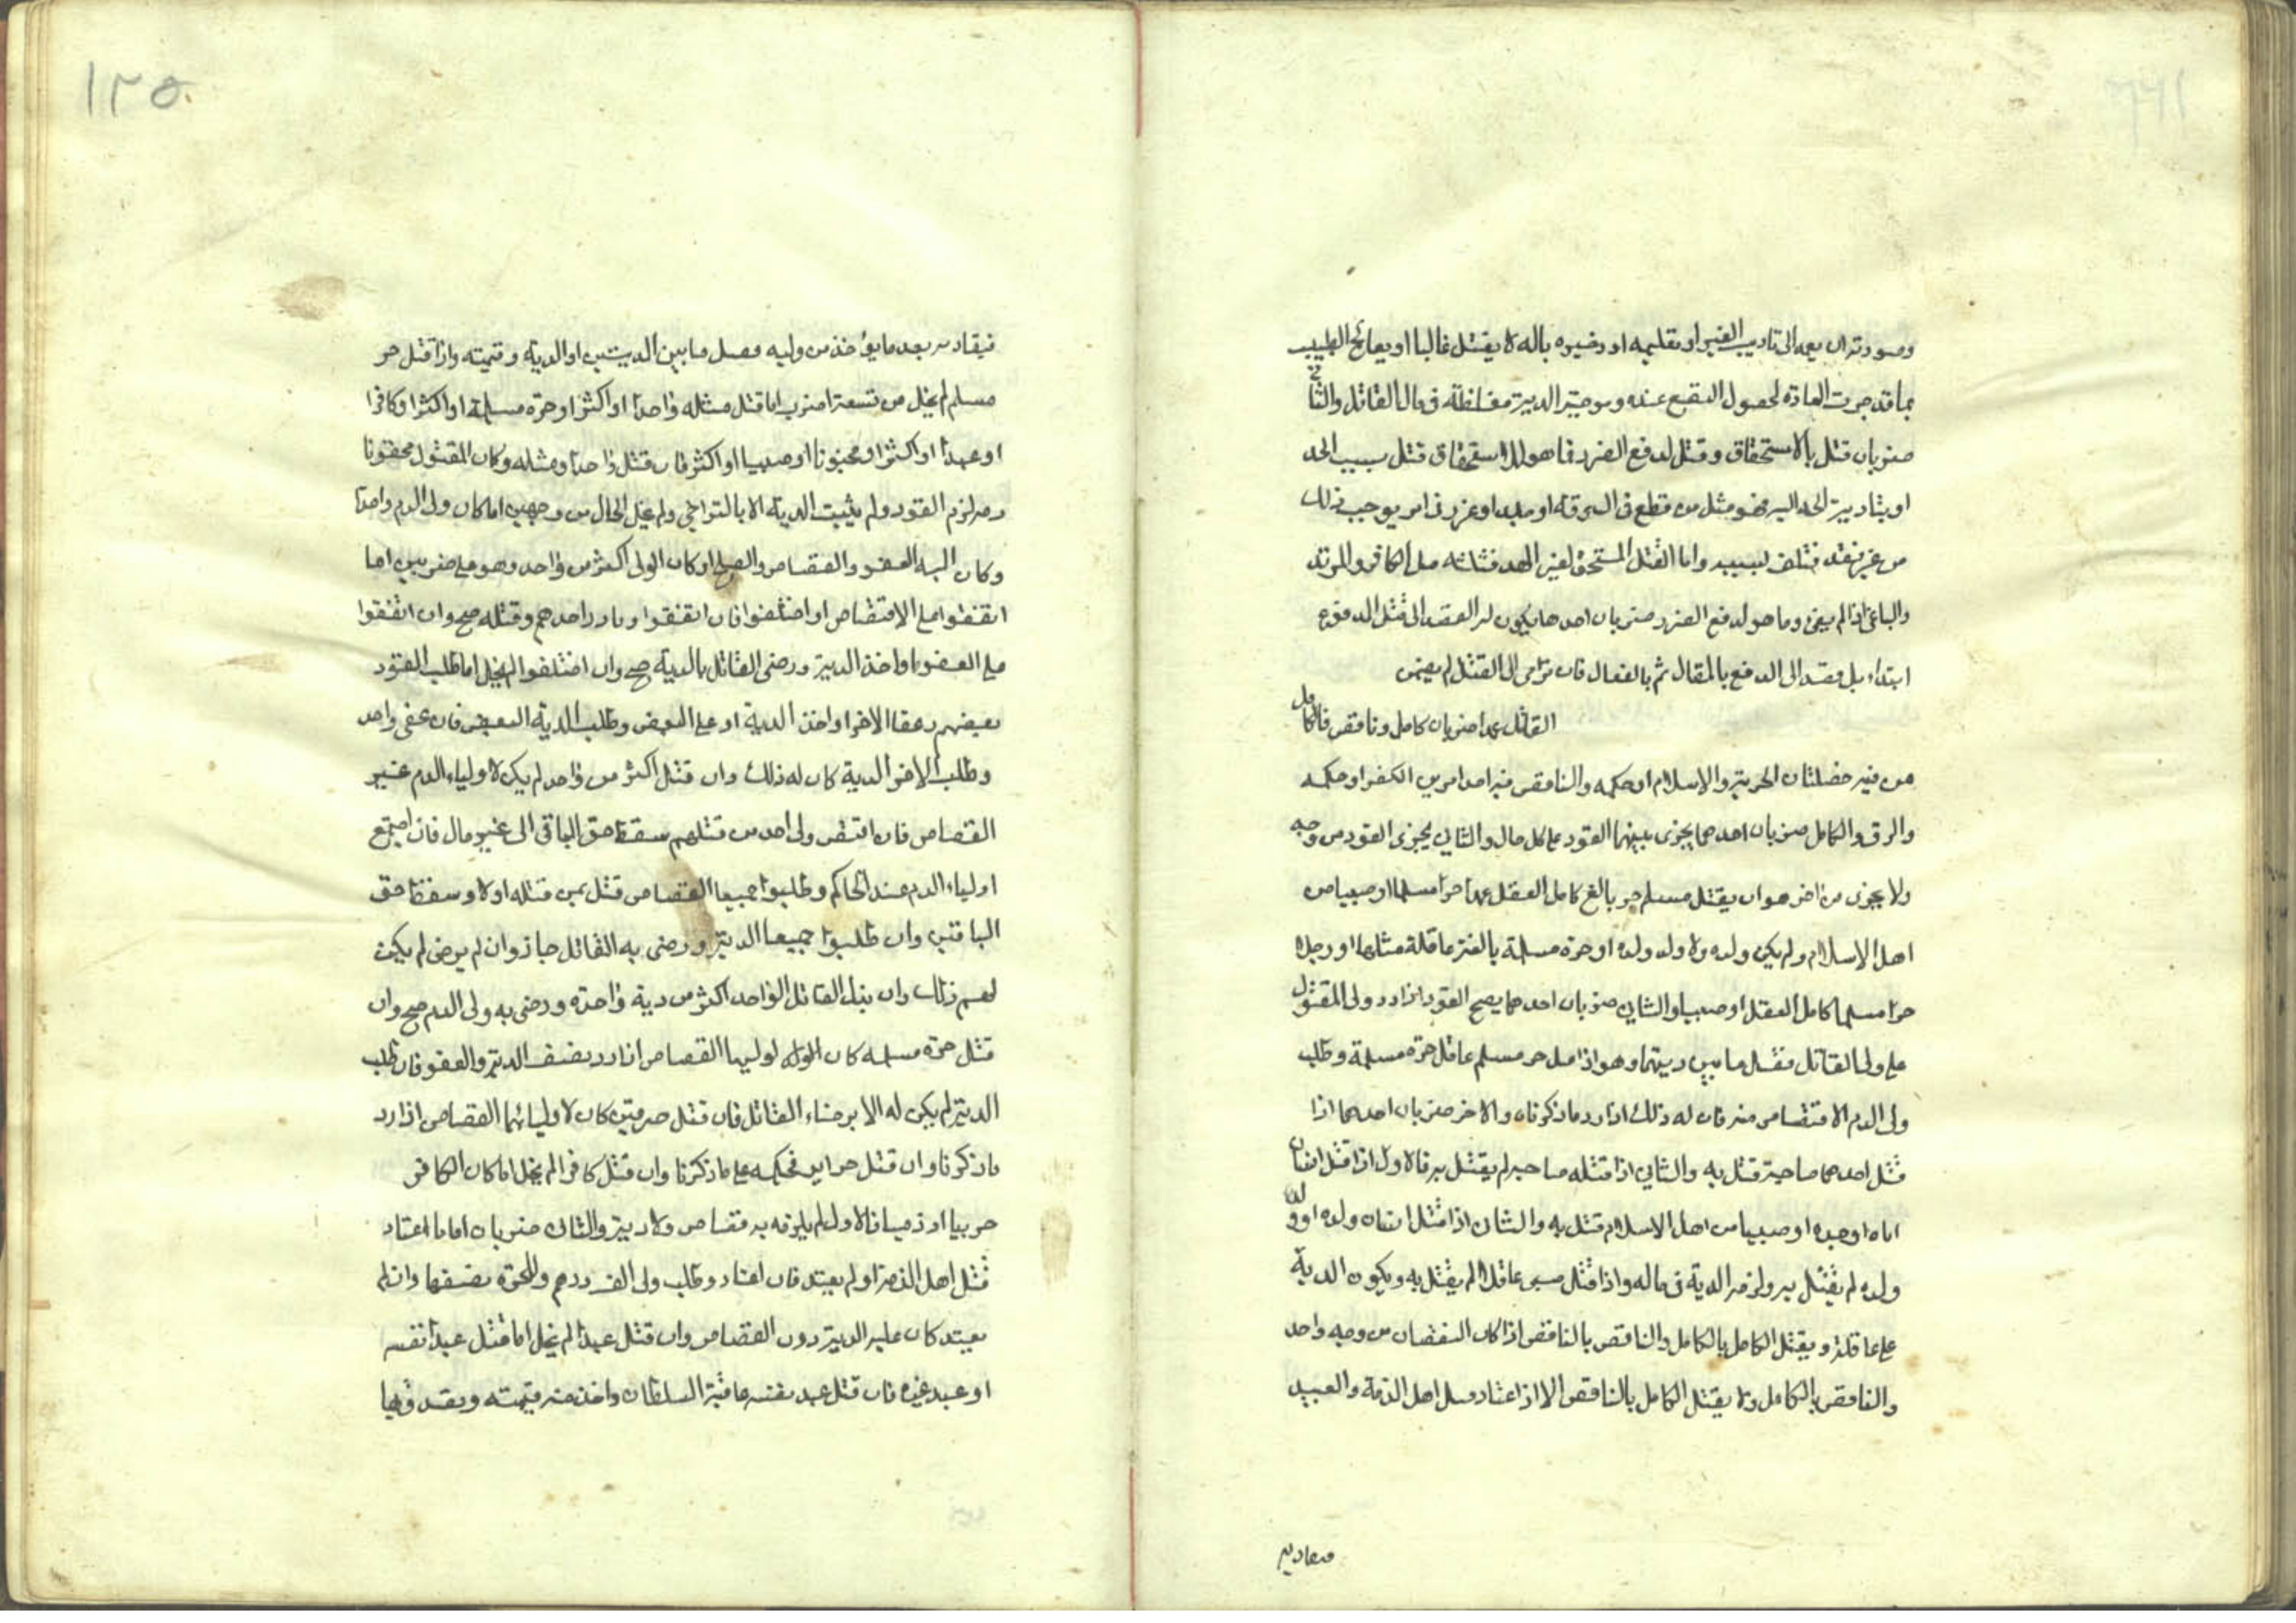 وصورته ان يعمد الى تاديب الغير او تعليمه او غيره باله لا يقتل غالبا او يعالج الطبيب
بما قد جرت العادة لحصول النفع عنده وموجبه الدية مغلظة في مال القاتل والثاني
ضربان قتل بالاستحقاق وقتل لدفع الضرر فما هو للاستحقاق قتل بسبب الحد
او بتاديب الحد اليه فهو مثل من قطع في السرقة او جلد او عزر في امر يوجب ذلك
من غير فتلف بسببه واما القتل المستحق لغير الحد فثلثة مثل الكافر والمرتد
والباغي اذا لم يفئ وما هو لدفع الضرر ضربان احدها يكون له القصد الى قتل المدفوع
ابتداء بل قصد الى الدفع بالمقال ثم بالفعال فان ترامى الى القتل لم يضمن
القاتل عمدا ضربان كامل وناقص فالكامل
من فيه خصلتان الحرية والاسلام او حكمه والناقص فيه احد امرين الكفر او حكمه
والرق والكامل ضربان احدهما يجرى بينهما القود على كل حال والثاني يجرى القود من وجه
ولا يجرى من اخر هو ان يقتل مسلم حر بالغ كامل العقل عمدا حرا مسلما او صبيا من
اهل الاسلام ولم يكن ولده ولا ولد ولده او حرة مسلمة بالغة عاقلة مثلها او رجلا
حرا مسلما كامل العقل او صبيا والثاني ضربان احدهما يصح القود اذا رد ولى المقتول
على ولى القاتل فضل ما بين ديتهما وهو اذا قتل حر مسلم عاقل حرة مسلمة وطلب
ولى الدم الاقتصاص منه فان له ذلك اذا رد ما ذكرناه والاخر ضربان احدهما اذا
قتل احدهما صاحبه قتل به والثاني اذا قتله صاحبه لم يقتل به فالاول اذا قتل انسان
اباه او جده او صبيا من اهل الاسلام قتل به والثان اذا قتل انسان ولده او ولد
ولده لم يقتل به ولزمه الدية في ماله واذا قتل صبى عاقلا لم يقتل به ويكون الدية
على عاقلته ويقتل الكامل بالكامل والناقص بالناقص اذا كان النقصان من وجه واحد
والناقص بالكامل ولا يقتل الكامل بالناقص الا اذا اعتاد قتل اهل الذمة والعبيد
فيقاد به بعد ما يؤخذ من وليه فضل ما بين الديتين او الدية وقيمته واذا قتل حر
مسلم لم يخل من تسعة اضرب اما قتل مثله واحدا او اكثر او حرة مسلمة او اكثر او كافرا
او عبدا او اكثر او مجنونا او صبيا او اكثر فان قتل واحدا ومثله وكان المقتول محقونا
دمه لزم القود ولم يثبت الدية الا بالتراضي ولم يخل الحال من وجهين اما كان ولى الدم واحدا
وكان اليه العفو والقصاص والصلح او كان الولى اكثر من واحد وهو على ضربين اما
اتفقوا على الاقتصاص او اختلفوا فان اتفقوا وبادر احدهم وقتله صح وان اتفقوا
على العفو او اخذ الدية ورضى القاتل بالدية صح وان اختلفوا لم يخل اما طلب القود
بعضهم وعفا الاخر او اخذ الدية او على البعض وطلب الدية البعض فان عفى واحد
وطلب الاخر الدية كان له ذلك وان قتل اكثر من واحد لم يكن لاولياء الدم غير
القصاص فان اقتص ولى احد من قتلهم سقط حق الباقى الى غير مال فان اجتمع
اولياء الدم عند الحاكم وطلبوا جميعا القصاص قتل بمن قتله اولا وسقط حق
الباقين وان طلبوا جميعا الدية ورضى به القاتل جاز وان لم يرض لم يكن
لهم ذلك وان بذل القاتل الواحد اكثر من دية واحدة ورضى به ولى الدم صح وان
قتل حرة مسلمة كان لوليها القصاص اذا رد نصف الدية والعفو فان طلب
الدية لم يكن له الا برضاء القاتل فان قتل حرمتين كان لاوليائهما القصاص اذا رد
ما ذكرنا وان قتل حراير فحكمه على ما ذكرنا وان قتل كافرا لم يخل اما كان الكافر
حربيا او ذميا فالاول لم يلزمه به قصاص ولا دية والثان ضربان اما ما اعتاد
قتل اهل الذمة او لم يعتد فان اعتاد وطلب ولى الدم وللحرة نصفها وان لم
يعتد كان عليه الدية دون القصاص وان قتل عبدا لم يخل اما قتل عبد نفسه
او عبد غيره فان قتل عبد نفسه عاقبه السلطان واخذ منه قيمته وتصدق بها